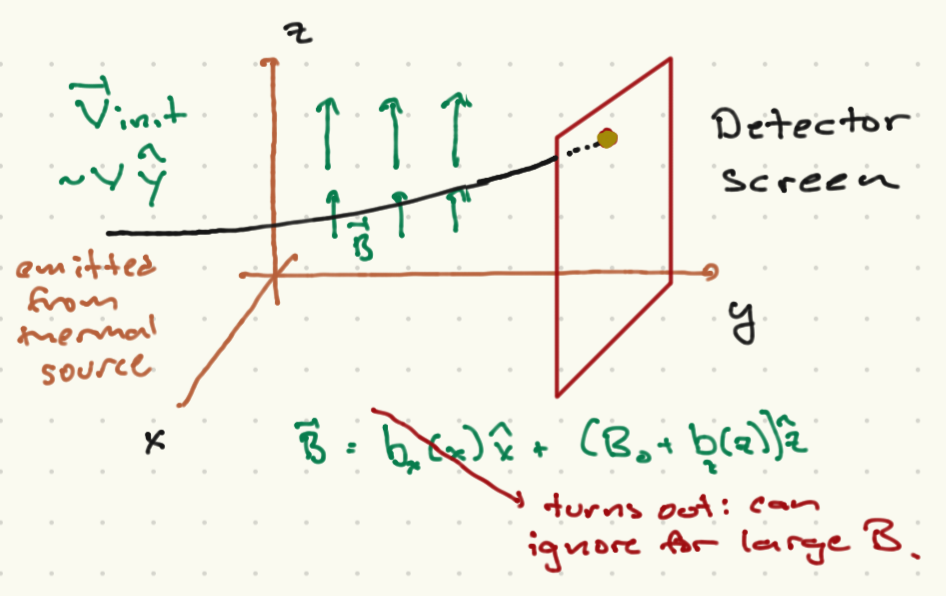 z
V⃗init
~v ŷ
Detector
Screen
B⃗
emitted
from
thermal
source
y
x
B⃗ = bₓ(x) x̂ + (B₀ + b_z(z)) ẑ
turns out: can
ignore for large B.